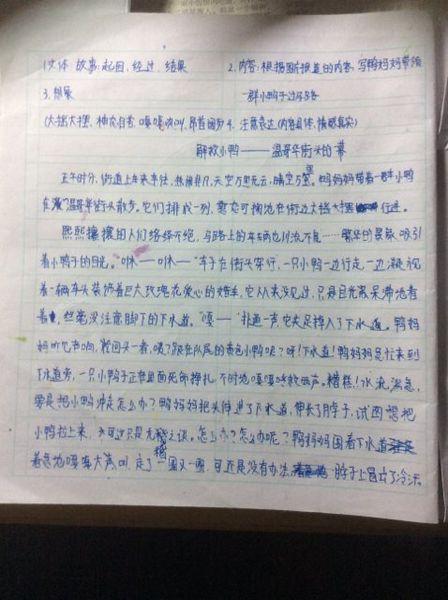 1.文体 故事:起因、经过、结果 2.内容:根据图片报道的内容,写鸭妈妈带领
3.想象 一群小鸭子过马路
(大摇大摆、神气自若、嘎嘎欢叫、昂首阔步 4.注意表达(内容具体、情感真实)
解救小鸭——温哥华街头的一幕
正午时分,街道上车来车往,热闹非凡,天空万里无云,晴空万里。鸭妈妈带着一群小鸭
在温哥华街头散步。它们排成一列,憨态可掬地在街边大摇大摆行进。
熙熙攘攘的人们络绎不绝,马路上的车辆也川流不息……繁华的景致吸引
着小鸭子的目光。"咻——咻——"车子在街头穿行,一只小鸭一边行走一边凝视
着一辆车头装饰着巨大玫瑰花爱心的婚车,它从来没见过,只是目光呆滞地看
着,丝毫没注意脚下的下水道。"嘎——"扑通一声,它失足掉入了下水道。鸭妈
妈听见声响,转回头一看,咦?跟在队尾的黄色小鸭呢?呀!下水道!鸭妈妈急忙来到
下水道旁,一只小鸭子正在里面死命挣扎,不时地嘎嘎呼救两声。糟糕!水流湍急,
要是把小鸭冲走怎么办?鸭妈妈把头伸进了下水道,伸长了脖子,试图想把
小鸭拉上来,不过这只是无稽之谈。怎么办?怎么办呢?鸭妈妈围着下水道
着急地嘎嘎大声叫,走了一圈又一圈,可还是没有办法,脖子上冒出了冷汗